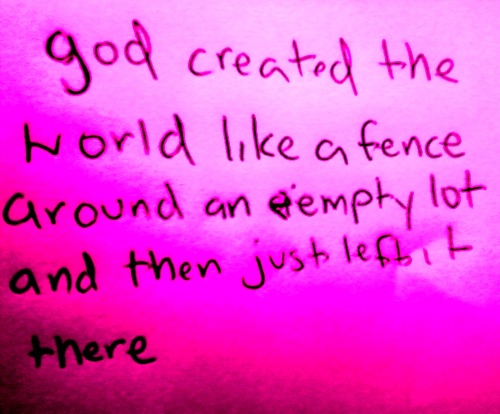 god created the
world like a fence
around an empty lot
and then just left it
there